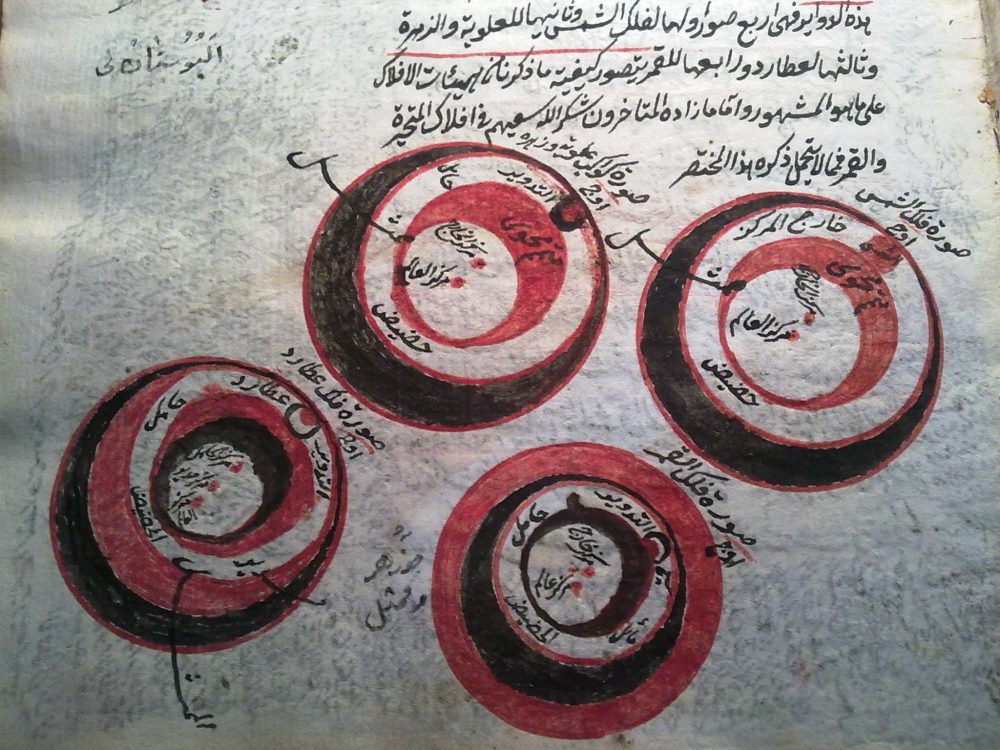 هذه الدواير فهى اربع صور اولها لفلك الشمس وثانيها للعلوية والزهرة
وثالثها لعطارد ورابعها للقمر يتصور كيفية ما ذكرنا من هيئات الافلاك
على ما هو المشهور واما ما زاده المتاخرون شكر الله سعيهم فى افلاك المتحيرة
والقمر فمما لا يحتمل ذكره هذا المختصر
صورة فلك الشمس
اوج
خارج المركز
متمم محوى
مركز الخارج
مركز العالم
حضيض
صورة كواكب علوية وزهره
اوج
التدوير
حامل
متمم محوى
مركز الخارج
مركز العالم
حضيض
صورة فلك عطارد
اوج
عطارد
التدوير
حامل
مركز الحامل
الحضيض
صورة فلك القمر
اوج
التدوير
حامل
مركز خارج
مركز عالم
مائل
الحضيض
جوزهر
وممثل